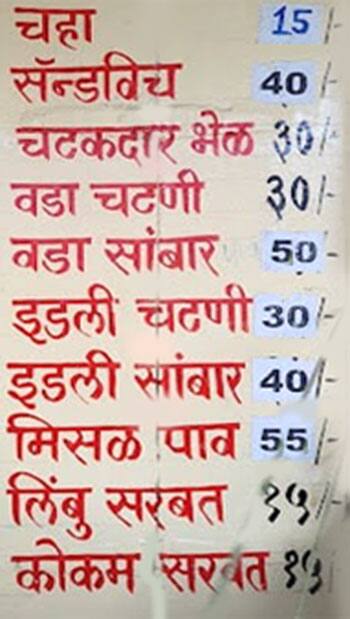 चहा 15/-
सॅन्डविच 40/-
चटकदार भेळ ३०/-
वडा चटणी ३०/-
वडा सांबार 50/-
इडली चटणी 30/-
इडली सांबार 40/-
मिसळ पाव 55/-
लिंबु सरबत १५/-
कोकम सरबत १५